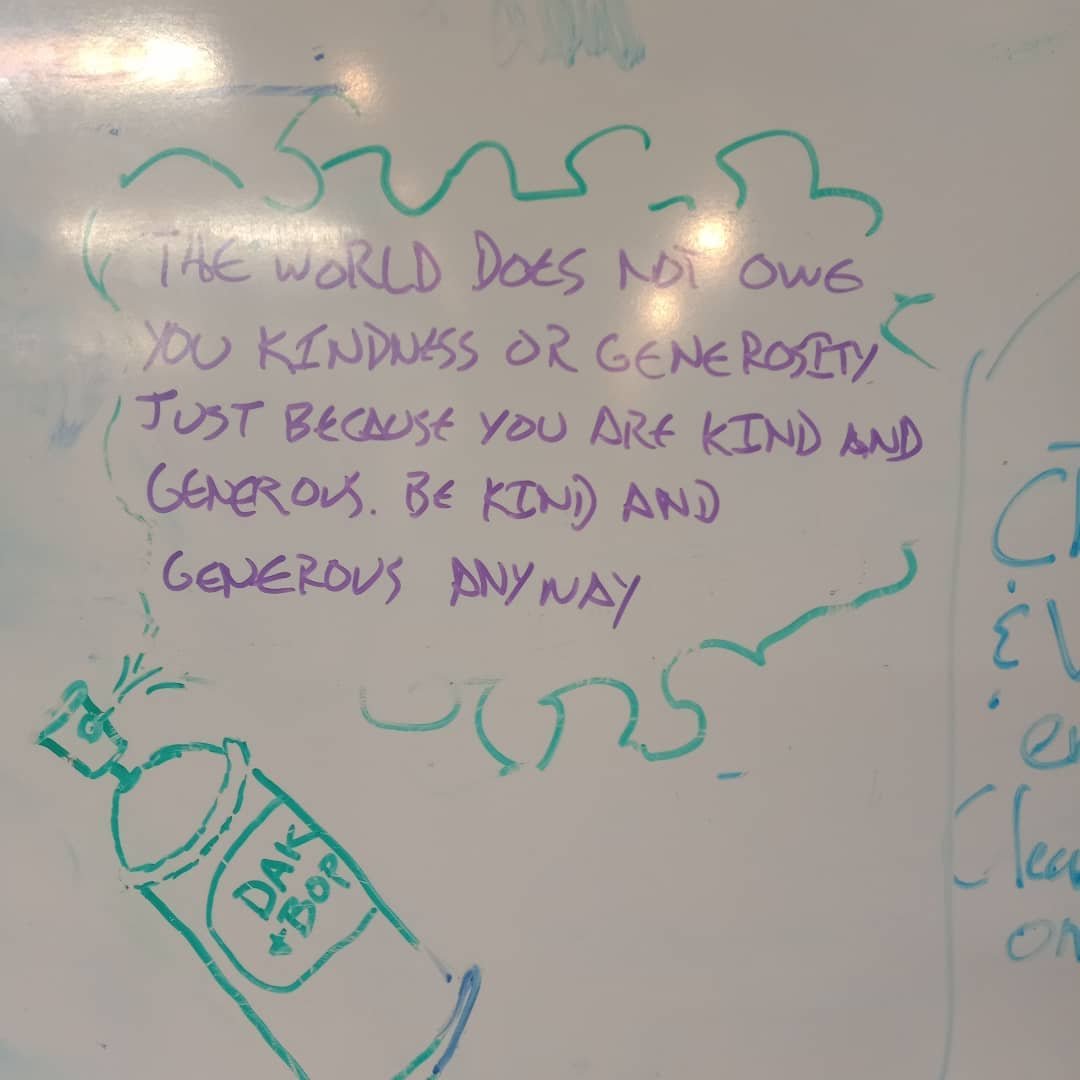 THE WORLD DOES NOT OWE
YOU KINDNESS OR GENEROSITY
JUST BECAUSE YOU ARE KIND AND
GENEROUS. BE KIND AND
GENEROUS ANYWAY
DAK
BOP
on